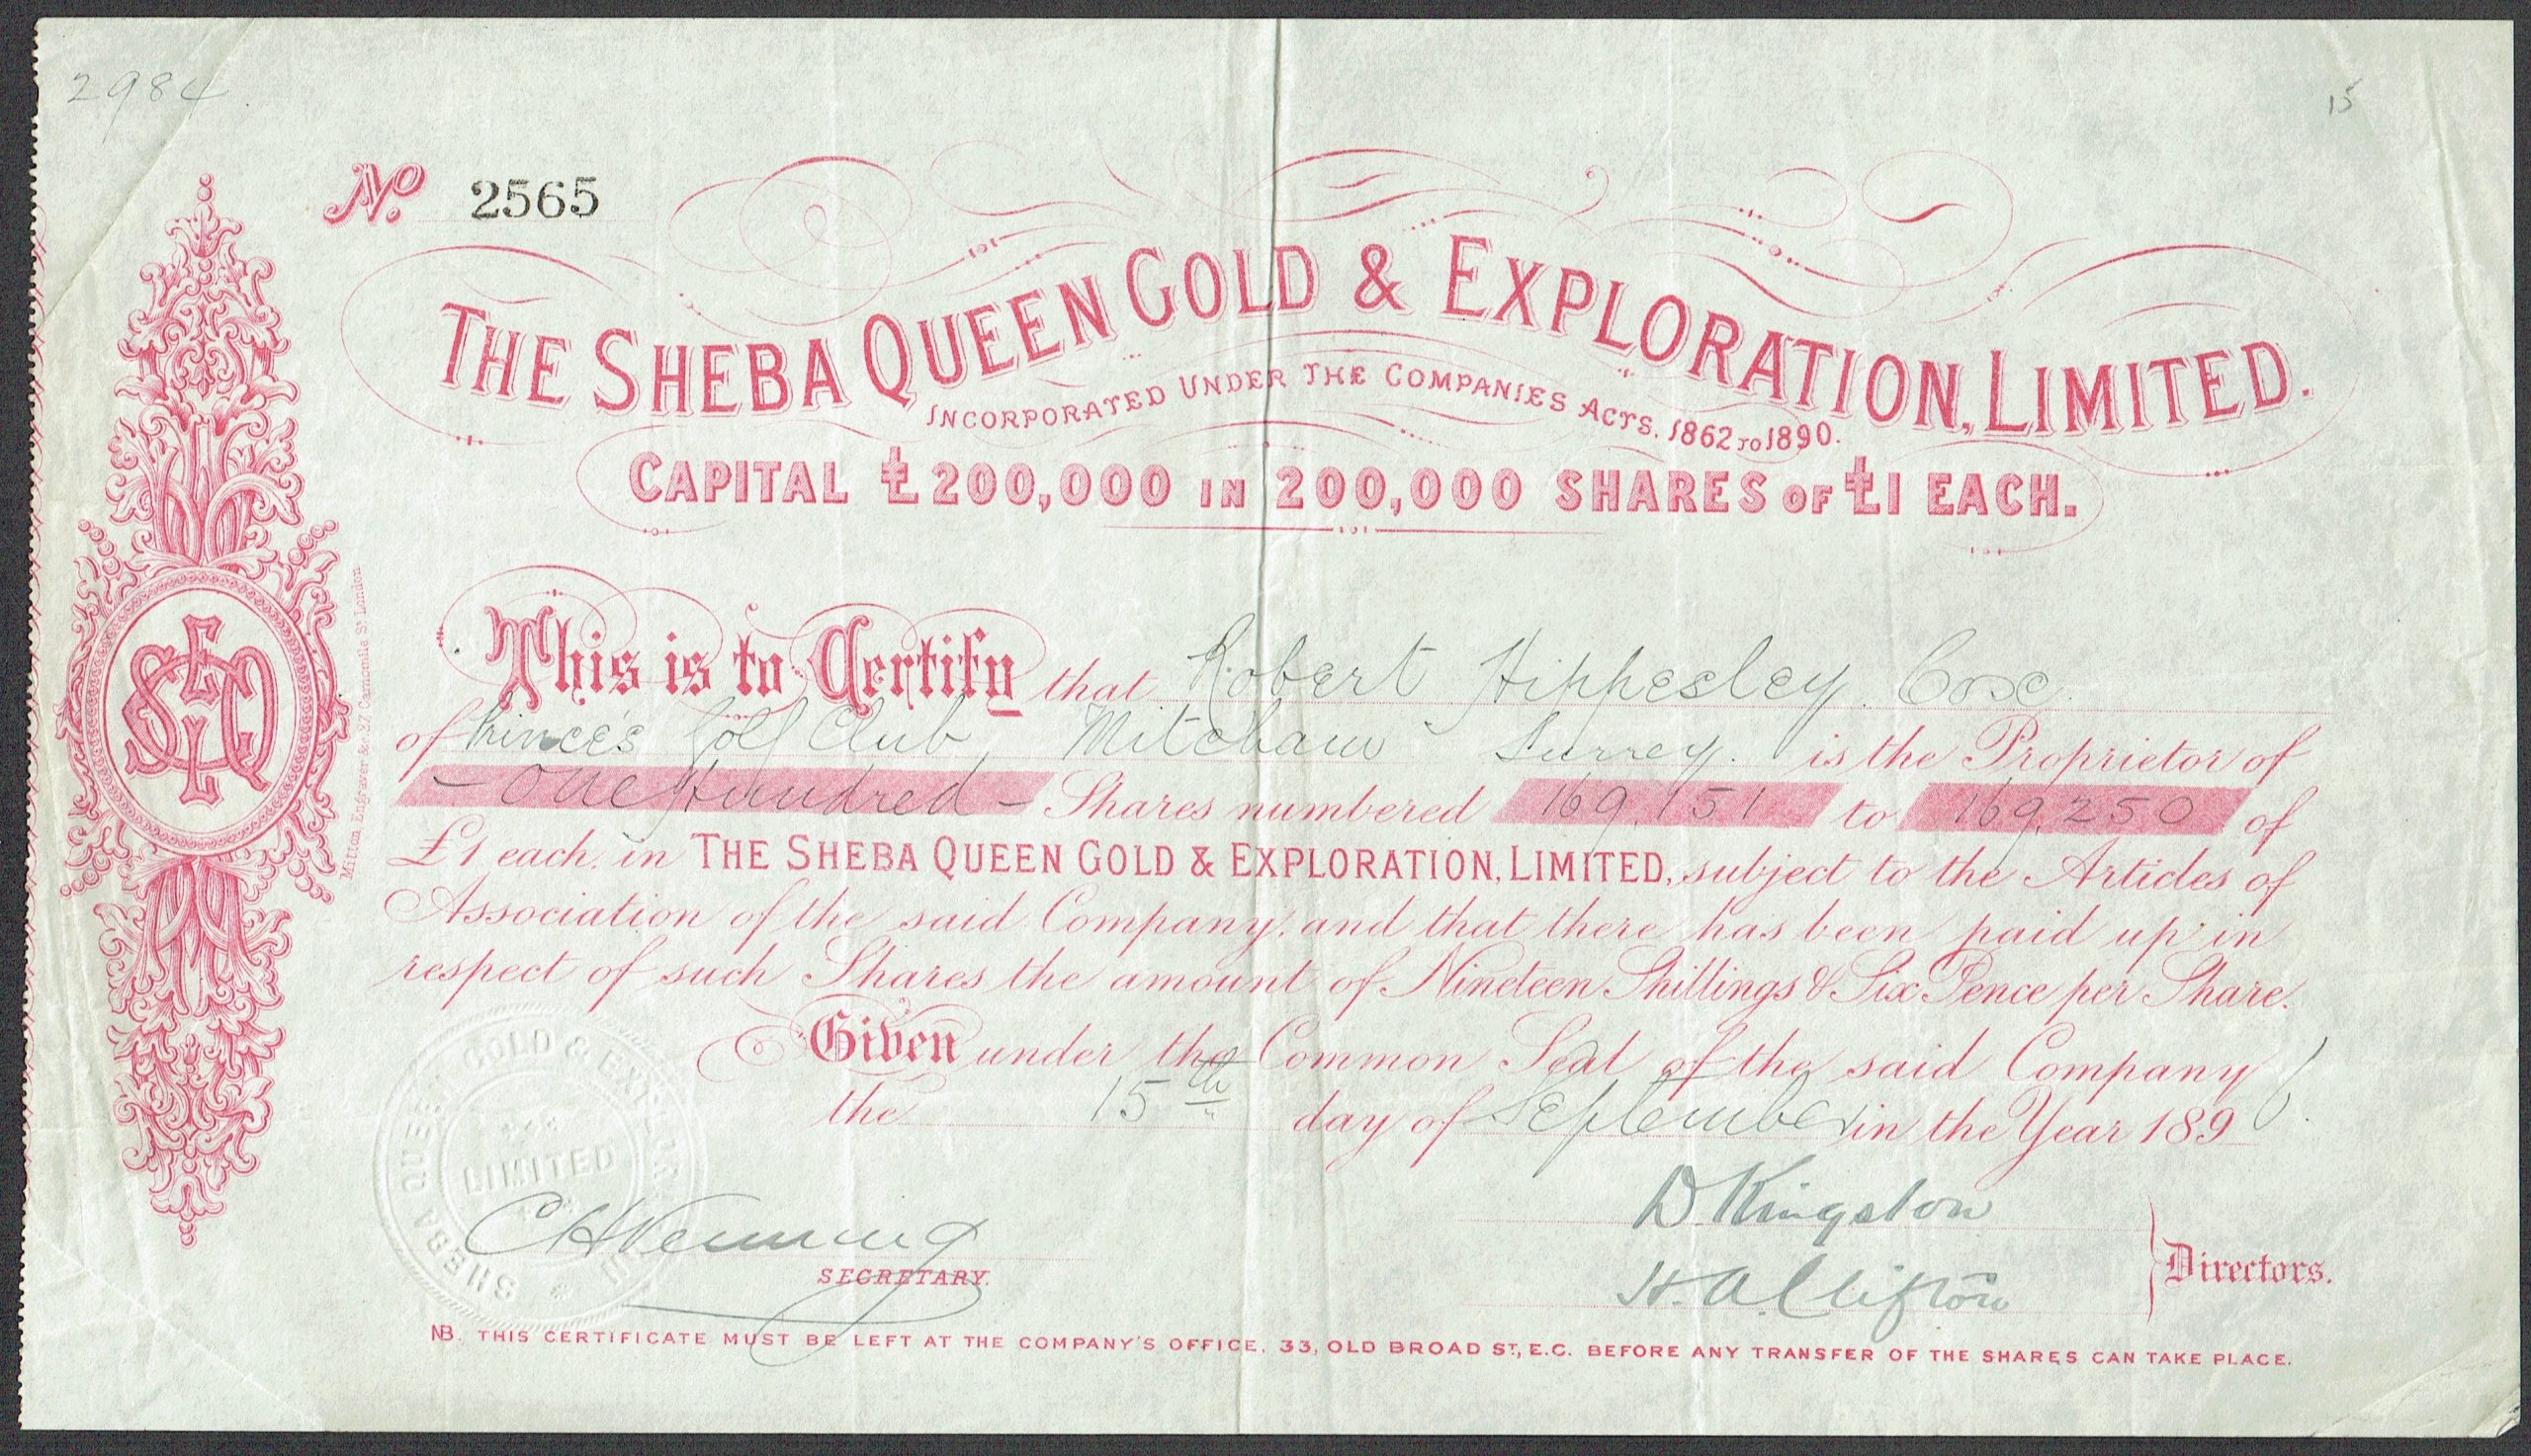 2984
15
No. 2565
THE SHEBA QUEEN GOLD & EXPLORATION, LIMITED.
INCORPORATED UNDER THE COMPANIES ACTS, 1862 TO 1890.
CAPITAL £200,000 IN 200,000 SHARES OF £1 EACH.
This is to Certify that Robert Hippesley Cox
of Prince's Golf Club, Mitcham Surrey. is the Proprietor of
- One Hundred - Shares numbered 169,151 to 169,250 of
£1 each, in THE SHEBA QUEEN GOLD & EXPLORATION, LIMITED, subject to the Articles of
Association of the said Company, and that there has been paid up in
respect of such Shares the amount of Nineteen Shillings & Six Pence per Share.
Given under the Common Seal of the said Company
the 15th day of September in the Year 1896.
SHEBA QUEEN GOLD & EXPLORATION
LIMITED
C H Venning
SECRETARY.
D. Kingston
H. A. Clifton
Directors.
NB. THIS CERTIFICATE MUST BE LEFT AT THE COMPANY'S OFFICE, 33, OLD BROAD ST, E.C. BEFORE ANY TRANSFER OF THE SHARES CAN TAKE PLACE.
Mitton Engraver &c. 27 Camomile St London
SQGEL